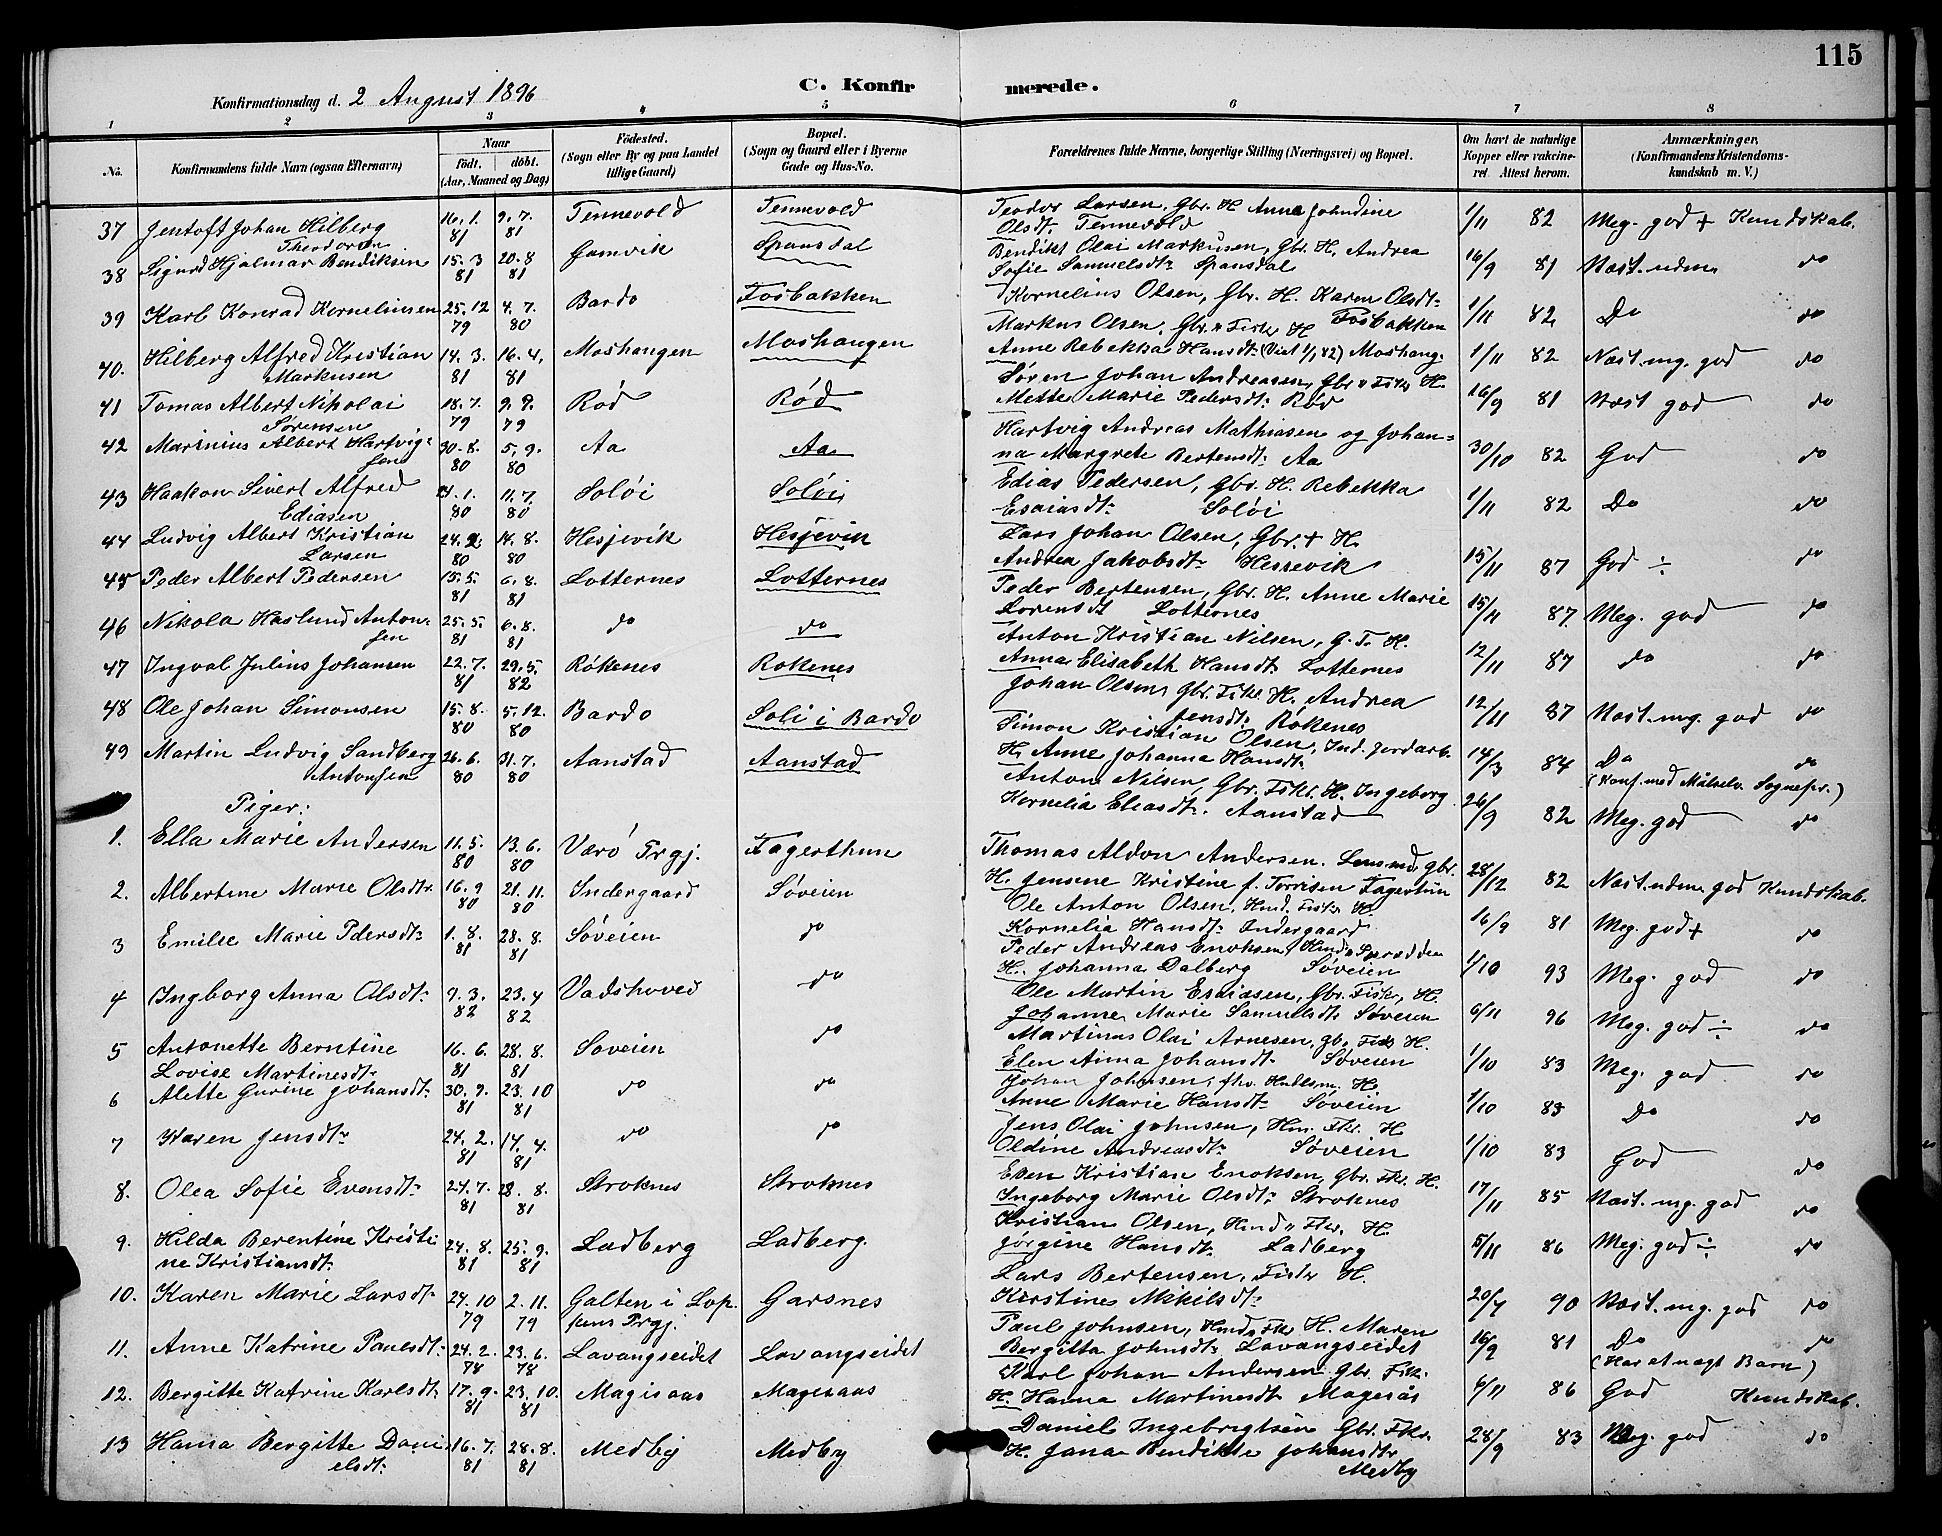 115
Konfirmationsdag d. 2 August 1896
C. Konfir merede.
1 2 3 4 5 6 7 8
No. Konfirmandens fulde Navn (ogsaa Efternavn) Naar født. døbt. (Aar, Maaned og Dag) Fødested. (Sogn eller By og paa Landet tillige Gaard) Bopæl. (Sogn og Gaard eller i Byerne Gade og Hus-No. Forældrenes fulde Navne, borgerlige Stilling (Næringsvei) og Bopæl. Om havt de naturlige Kopper eller vakcineret. Attest herom. Anmærkninger, (Konfirmandens Kristendomskundskab m. V.)
37 Jentoft Johan Hilberg Theodorsen 16. 1. 81 9. 7. 81 Tennevold Tennevold Teodor Larsen, Gbr. H. Anne Johndine Olsdt. Tennevold 1/11 82 Meg. god + Kundskab.
38 Sigurd Hjalmar Bendiksen 15. 3 81 20. 8 81 Gamvik Spansdal Bendikt Olai Markusen, Gbr. H. Andrea Sofie Samuelsdt. Spansdal 16/9 81 Næst. udm. do
39 Karl Konrad Korneliusen 25. 12 79 4. 7. 80 Bardo Fosbakken Kornelius Olsen, Gbr. H. Karen Olsdt. Fosbakken 1/11 82 Do do
40. Hilberg Alfred Kristian Markusen 14. 3. 81 16. 4. 81 Moshaugen Moshaugen Markus Olsen, Gbr. " Fisk H Anne Rebekka Hansdt. (Viet 1/1 82) Moshaug. 1/11 82 Næst. mg. god do
41 Tomas Albert Nikolai Sørensen 18. 7. 79 9. 9. 79 Rød Rød Søren Johan Andreasen, Gbr " Fisk H. Mette Marie Pedersdt. Rød 16/9 81 Næst god do
42 Marinius Albert Hartvigsen 30. 8. 80 5. 9. 80 Aa Aa Hartvig Andreas Mathiasen og Johanna Margrete Bertensdt. Aa 30/10 82 God do
43 Haakon Sivert Alfred Ediasen 21. 1. 80 11. 7. 80 Soløi Soløi Edias Pedersen, Gbr. H. Rebekka Esaiasdt. Soløi 1/11 82 Do do
44 Ludvig Albert Kristian Larsen 24. 2. 80 14. 8. 80 Hesjevik Hesjevik Lars Johan Olsen, Gbr. + H. Andrea Jakobsdt. Hessevik 15/11 87 God ÷ do
45 Peder Albert Pedersen 15. 5. 81 6. 8. 81 Lotternes Lotternes Peder Bertensen, Gbr. H. Anne Marie Lorensdt Lotternes 15/11 87. Meg. god do
46 Nikola Haslund Antonsen 25. 5. 81 6. 8. 81 do do Anton Kristian Nilsen, G. F. H. Anna Elisabeth Hansdt. Lotternes 12/11 87 do do
47 Ingval Julius Johansen 22. 7. 81 29. 5. 82 Røkenes Rokenes Johan Olsen, Gbr. Fisk. H. Andrea Jensdt. Røkenes 12/11 87 Næst. mg. god do
48 Ole Johan Simonsen 15. 8. 80 5. 12. 80 Bardo Soli i Bardo Simon Kristian Olsen, Ind. Jordarb. H. Anne Johanna Hansdt. 14/3 84 Do do (Konf. med Målselv. Sognepr.)
49 Martin Ludvig Sandberg Antonsen 26. 6. 80 31. 7. 80 Aanstad Aanstad Anton Nilsen, Gbr. Fskr. H. Ingeborg Kornelia Eliasdt. Aanstad 26/9 82 Meg. god do
Piger:
1. Ella Marie Andersen 11. 5. 80 13. 6. 80 Værø Prgj. Fagerthun Thomas Aldon Andersen. Lensmd, Gbr. H. Jensine Kristine f. Torrisen Fagertun 28/12 82 Næst. udm. god Kundskab.
2. Albertine Marie Olsdtr. 16. 9 80 21. 11. 80 Indergaard Søveien Ole Anton Olsen, Hmd. Fiskr. H. Kornelia Hansdt. Indergaard 16/9 81 Meg. god + do
3 Emilie Marie Pdersdt. 1. 8. 81 28. 8. 81 Søveien do Peder Andreas Enoksen, Hmd. H. Johanna Dalberg Søveien 1/10 93 Meg. god do
4 Ingborg Anna Olsdt. 9. 3. 82 23. 4 82 Vadshoved do Ole Martin Esaiasen, Gbr. Fiskr, H. Johanne Marie Samuelsdt. Søveien 6/11 96 Meg. god ÷ do
5 Antonette Berntine Lovise Martinesdt. 16. 6. 81 28. 8. 81 Soveien do Martinus Olai Arnesen, gb. Fisk H. Elen Anna Johansdt. Søveien 1/10 83 Meg. god do
6 Alette Gurine Johansdt. 30. 9. 81 23. 10 81 do do Johan Johnsen, fhv. Handelsm. H. Anne Marie Hansdt. Søveien 1/10 83 Do do
7 Karen Jensdtr 24. 2. 81 14. 4. 81 do do Jens Olai Johnsen, Hm. Fkr. H Oldine Andreasdt. Søveien 1/10 83 God do
8. Olea Sofie Evensdt. 24. 7. 81 28. 8. 81 Stroknes Stroknes Even Kristian Enoksen, Gbr. Fkr. H. Ingeborg Marie Olsdt. Stroknes 17/11 85 Næst. mg. god do
9. Hilda Berentine Kristine Kristiansdt. 24. 8. 81 25. 9. 81 Ladberg Ladberg. Kristian Olsen, Hmd " Fkr. H. Jørgine Hansdt. Ladberg 5/11 86 Meg. god ÷ do
10. Karen Marie Larsdt. 24. 10 79 2. 11. 79 Galten i Loppens Prgj. Garsnes Lars Bertensen, Fiskr H. Kirstine Mikkilsdt. 20/7 90 Næst. mg. god do
11. Anne Katrine Paulsdt. 24. 2. 78 23. 6. 78 Lavangseidet Lavangseidet Paul Johnsen, Hmd " Fkr H. Maren Bergitta Johnsdt. Lavangseidet 16/9 81 Do do (Har et uægt Barn)
12. Bergitte Katrine Karlsdt. 17. 9. 81 23. 10. 81 Magisaas Magesaas Karl Johan Andersen Gbr. Fik. H. Hanna Martinesdt. Magesås 6/11 86 God Kundskab.
13 Hansa Bergitte Danielsdt. 16. 7. 81 28. 8. 81 Medby Medby Daniel Ingebrigtsen Gbr. Fkr. H. Jana Bendikte Johansdtr Medby 28/9 83 Meg. god do